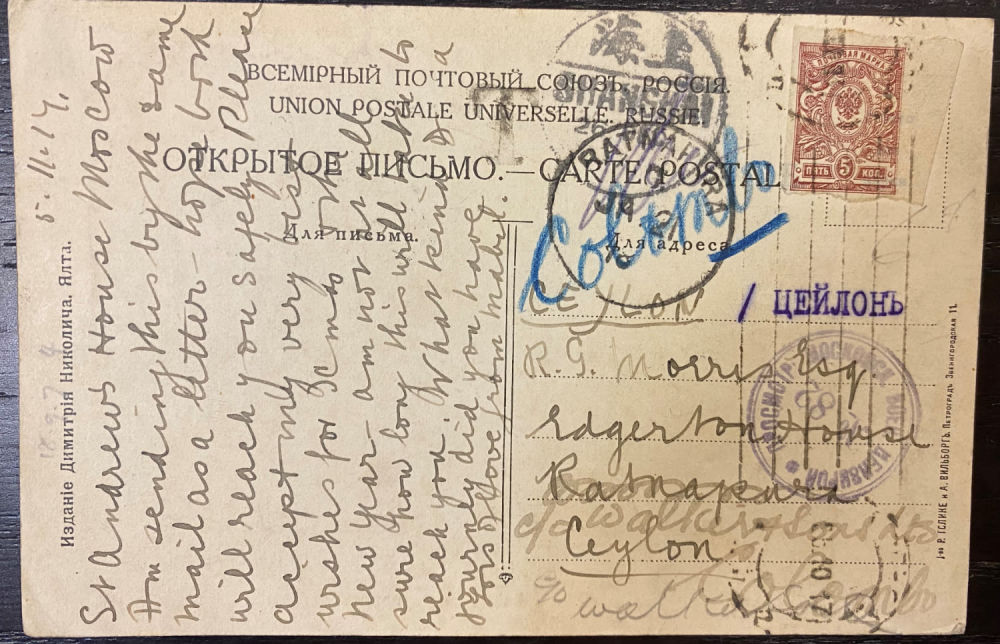 ВСЕМІРНЫЙ ПОЧТОВЫЙ СОЮЗЪ. РОССІЯ.
UNION POSTALE UNIVERSELLE. RUSSIE.
ОТКРЫТОЕ ПИСЬМО.—CARTE POSTALE
Для письма.
Для адреса
上海
SHANGHAI
T
ПОЧТОВАЯ МАРКА
5
ПЯТЬ КОП.
RATNAPURA
Colombo
CEYLON
/ ЦЕЙЛОНЪ
R. G. Morris Esq
Edgerton House
Ratnapura
c/o Walker & Sons Ltd
Ceylon
c/o Walker
Colombo
5.11.14.
St Andrews House Moscow
Am sending this by the same
mail as a letter - hope both
will reach you safely. Please
accept my very best
wishes for Xmas and
new year - am not at all
sure how long this will take to
reach you. What kind of a
journey did you have.
Lots of love from Mabel.
Изданіе Димитрія Николича. Ялта.
Т-во Р. ГОЛИКЕ и А. ВИЛЬБОРГЪ. ПЕТРОГРАДЪ. Звенигородская 11.